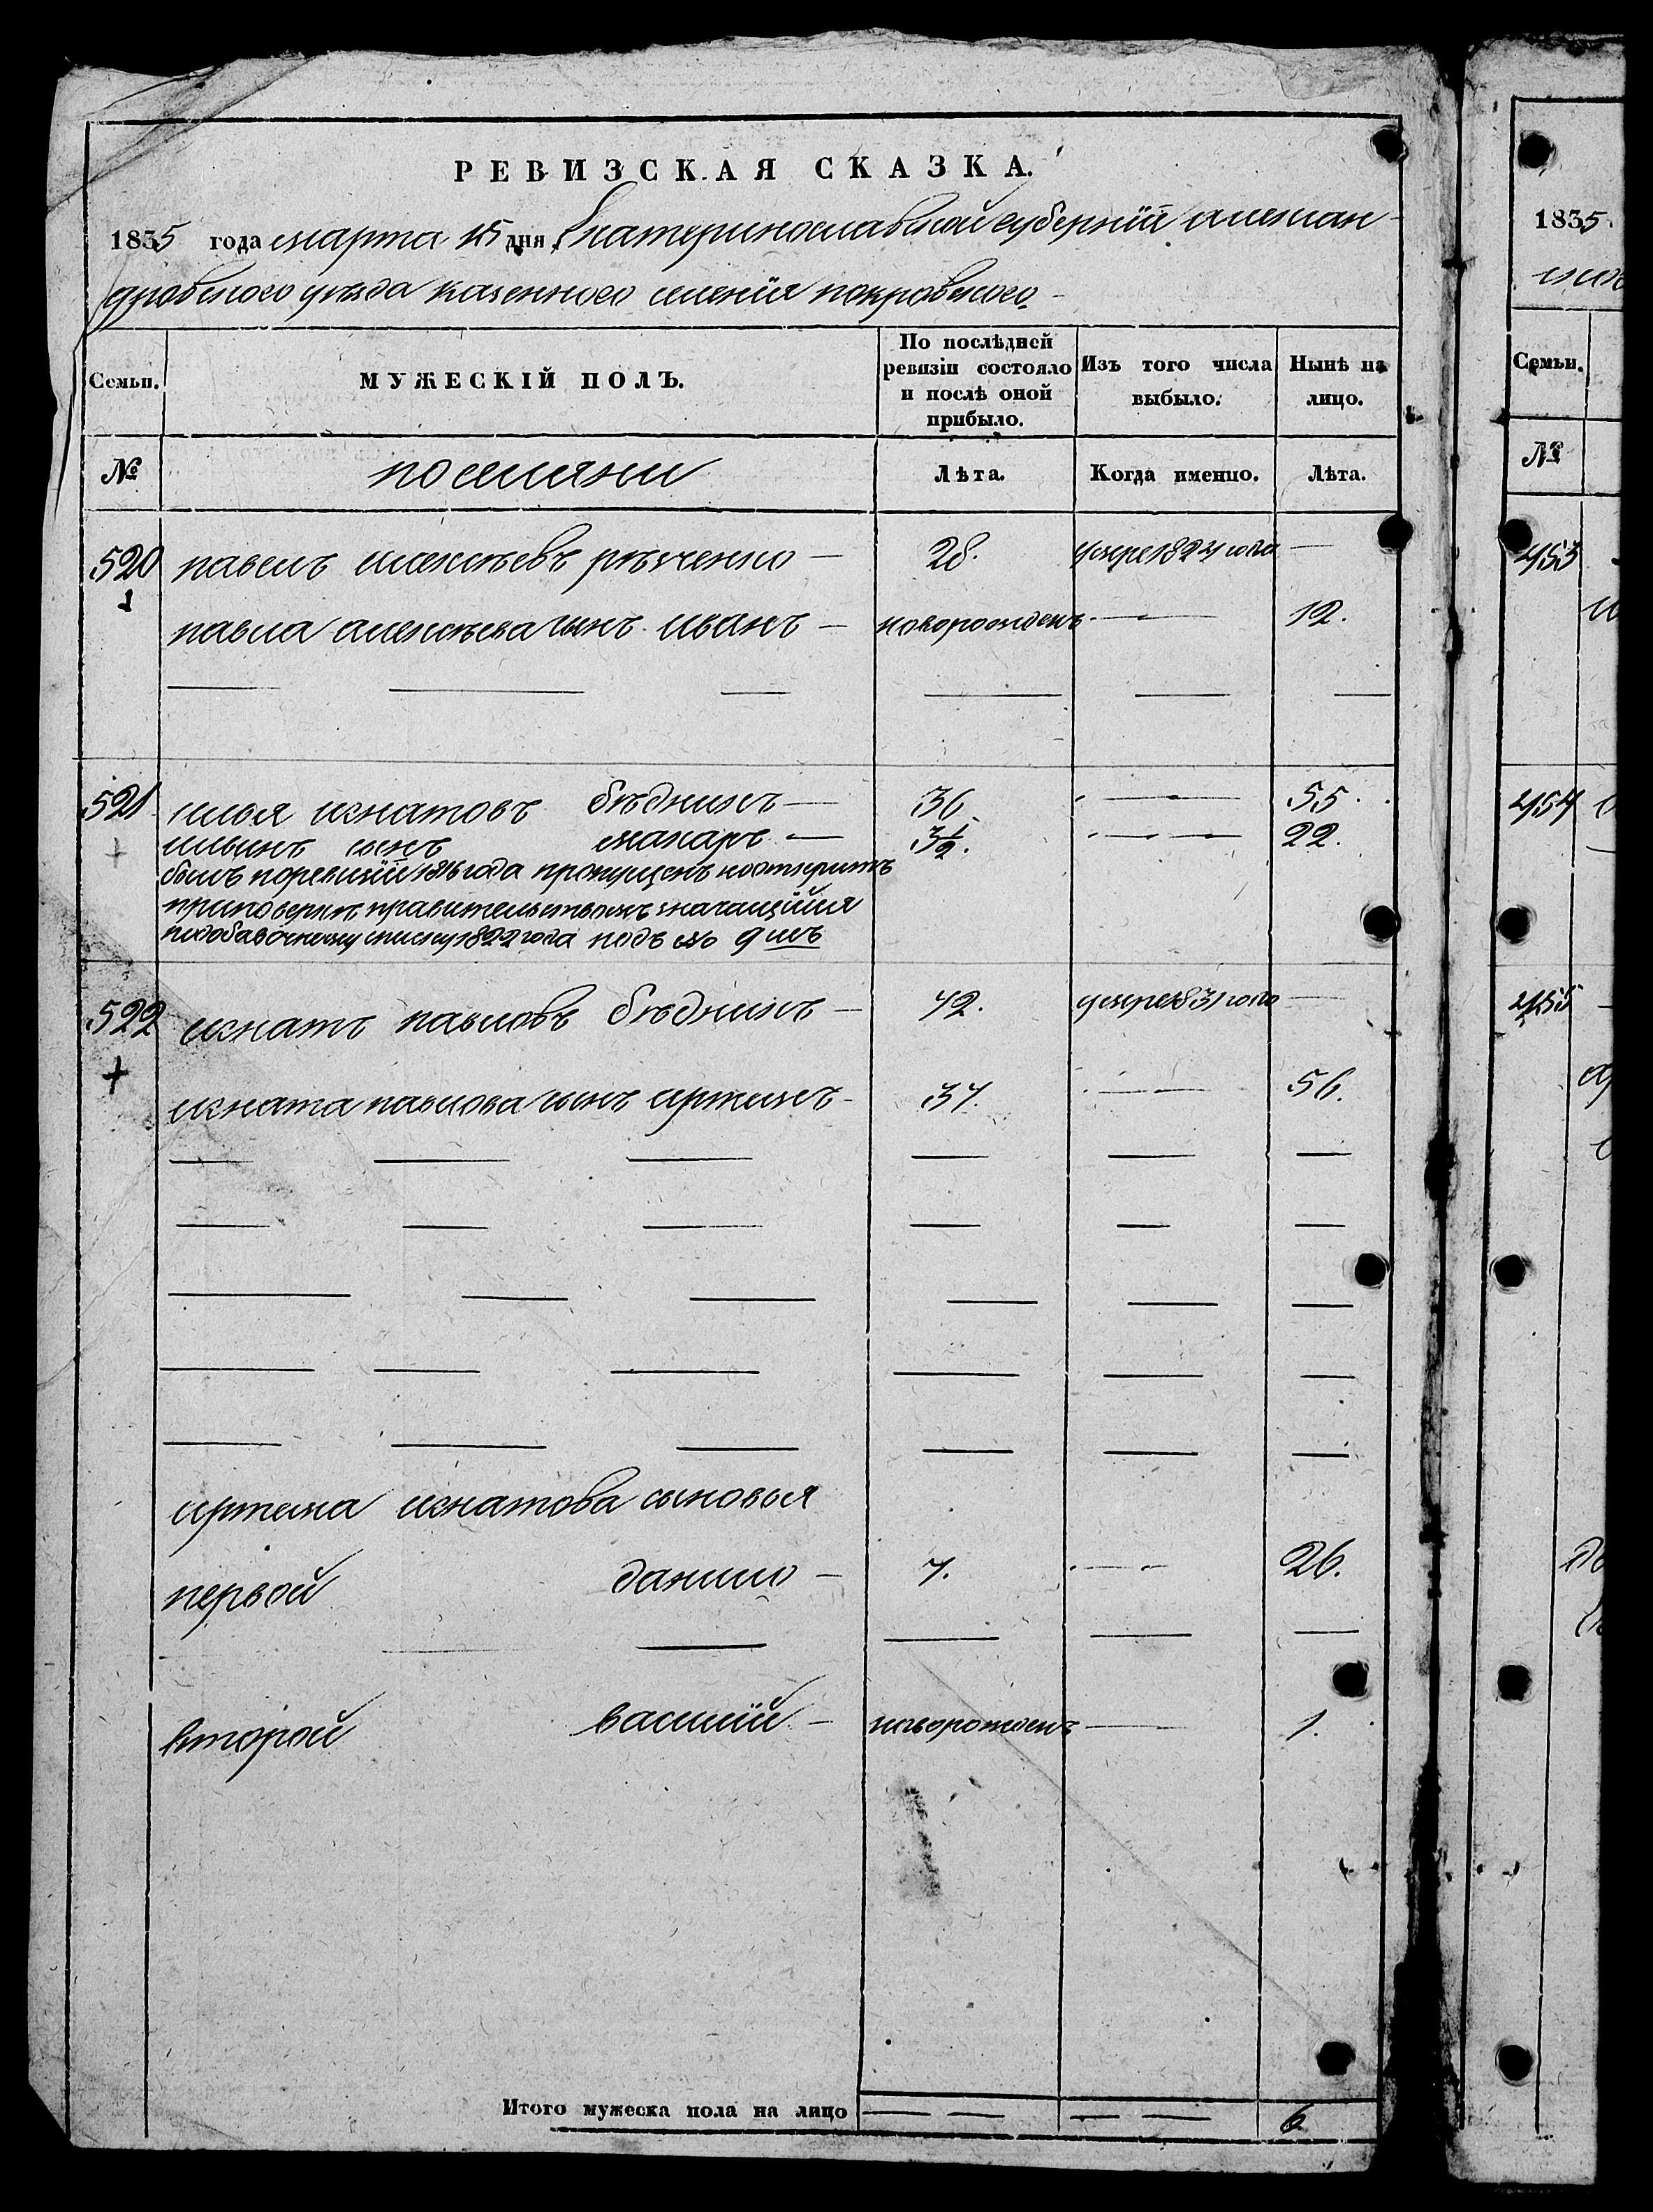 РЕВИЗСКАЯ СКАЗКА.
1835 года марта 15 дня Екатеринославской губерніи алексан
дровского уезда казенного селенія покровского
Семьи. МУЖЕСКІЙ ПОЛЪ. По послѣдней ревизіи состояло и послѣ оной прибыло. Изъ того числа выбыло. Нынѣ на лицо.
№ поселяни Лѣта. Когда именно. Лѣта.
520 павелъ алексѣевъ рѣченко — 28. умре 1824 года —
1
павла алексѣева сынъ иванъ — новорожденъ — 12.
521 илья игнатовъ бѣдникъ — 36 — 55.
ильинъ сынъ макаръ — 3½. — 22.
былъ поревизіи 1816 года пропущенъ
правительствомъ значащійся
подобавочному списку 1822 года подъ № 9 мъ
522 игнатъ павловъ бѣдникъ — 42. умре 1831 года —
+
игната павлова сынъ артемъ — 37. — 56.
артема игнатова сыновья
первой данило — 7. — 26.
второй василій — новорожденъ — 1.
Итого мужеска пола на лицо — — — — 6
1835
Семьи.
№
453
454
455